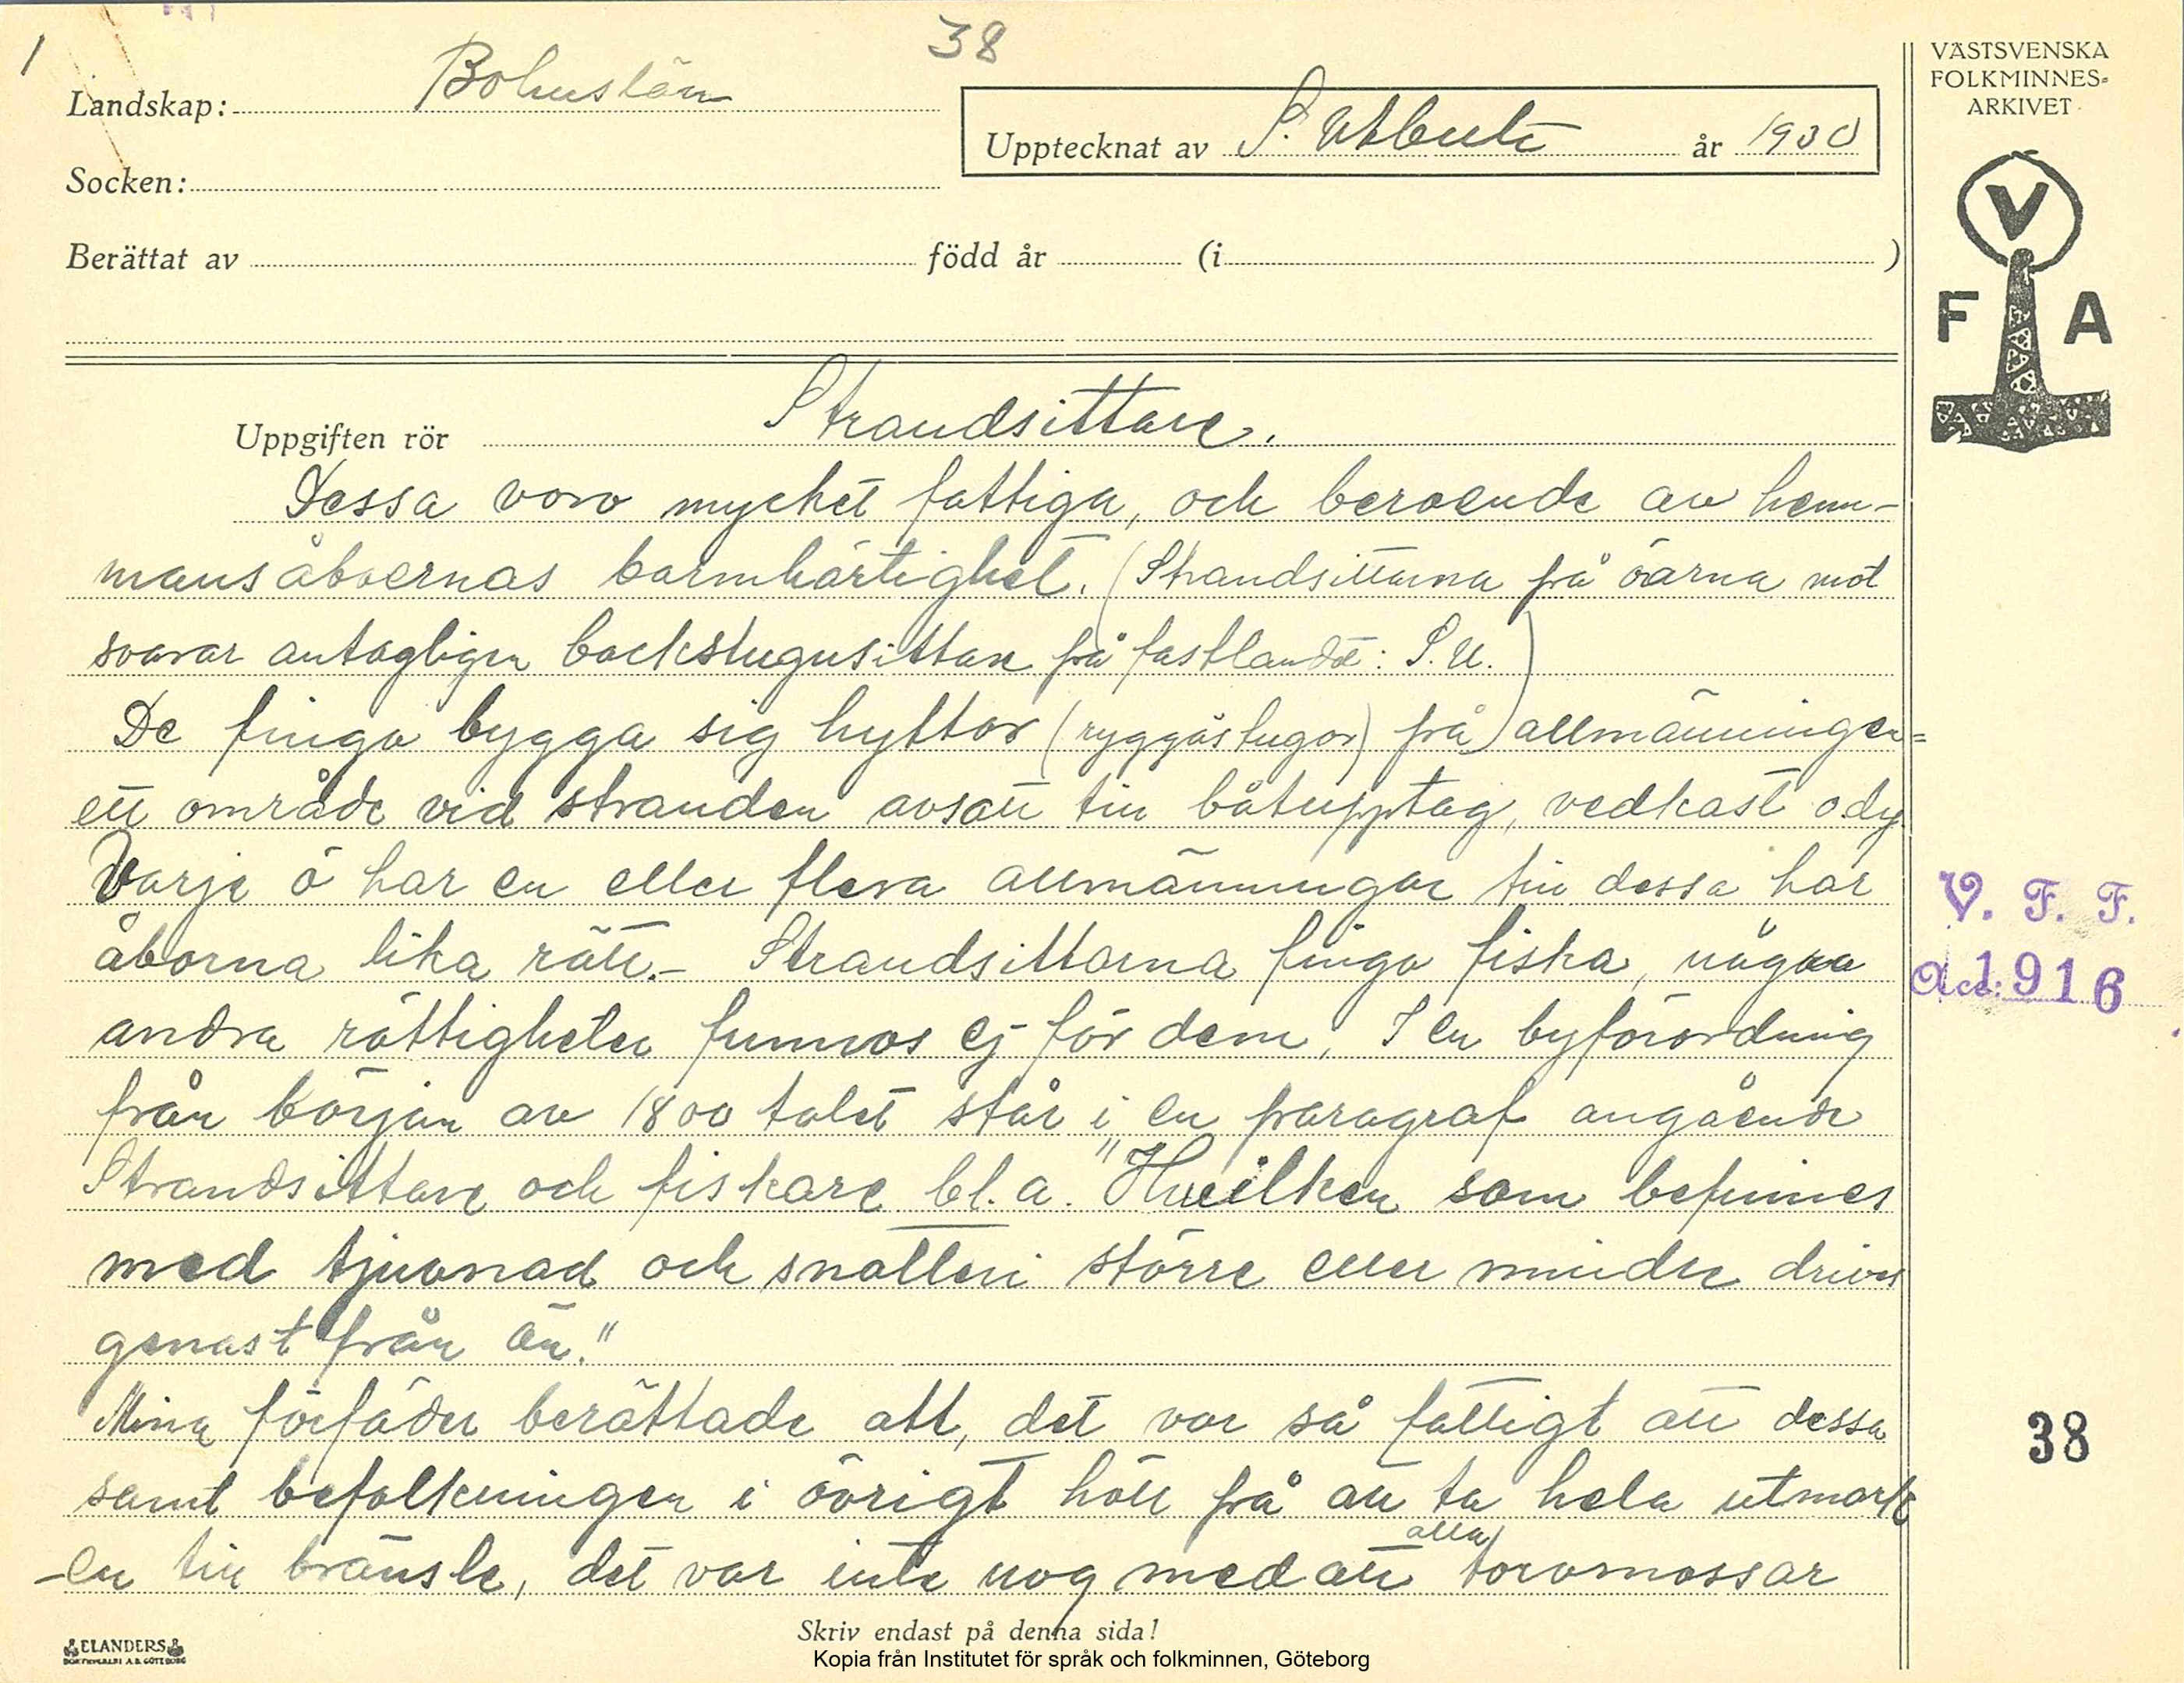 1
38
VÄSTSVENSKA
FOLKMINNES=
ARKIVET
Landskap: Bohuslän
Upptecknat av S. Utbult år 1930
Socken:
Berättat av född år (i )
V
F A
Uppgiften rör Strandsittare.
Dessa voro mycket fattiga, och beroende av hem-
mansåboernas barmhärtighet. (Strandsittarna på öarna mot
svarar antagligen backstugusittare på fastlandet: S.U.)
De fingo bygga sig hyttor (ryggåstugor) på allmänningen=
ett område vid stranden avsatt till båtupptag, vedkast o.dy.
Varje ö har en eller flera allmänningar till dessa har
åborna lika rätt.- Strandsittarna fingo fiska, några
andra rättigheter funnos ej för dem. I en byförordning
från början av 1800 talet står i en paragraf angående
Strandsittare och fiskare bl.a. "Hvilken som befinnes
med tjuvnad och snatteri större eller mindre drives
genast från ön."
Mina förfäder berättade att, det var så fattigt att dessa
samt befolkningen i övrigt höll på att ta hela utmark
-en till bränsle, det var inte nog med att alla torvmossar
V. F. F.
Acc: 1916
38
Skriv endast på denna sida!
ELANDERS
BOKTRYCKERI A.B. GÖTEBORG
Kopia från Institutet för språk och folkminnen, Göteborg